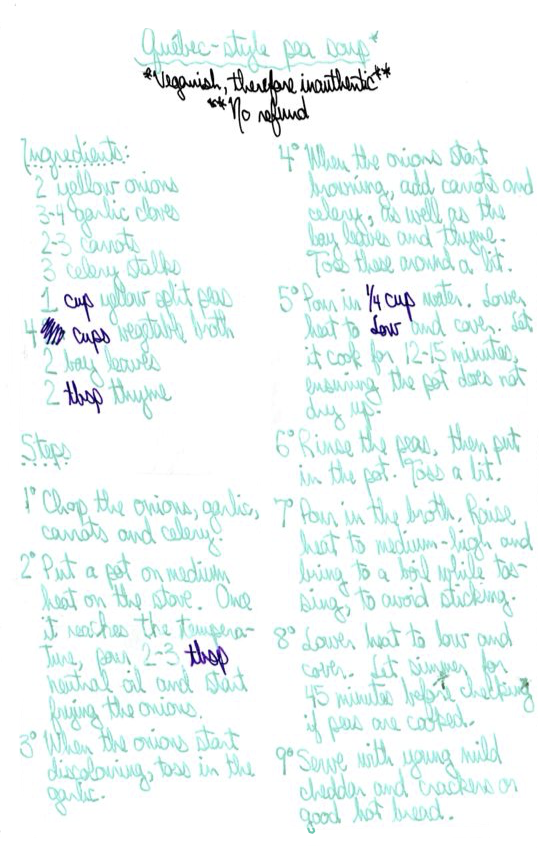 Québec-style pea soup*
*Veganish, therefore inauthentic**
**No refund
Ingredients:
2 yellow onions
3-4 garlic cloves
2-3 carrots
3 celery stalks
1 cup yellow split peas
4 cups vegetable broth
2 bay leaves
2 tbsp thyme
Steps
1° Chop the onions, garlic,
carrots and celery.
2° Put a pot on medium
heat on the stove. Once
it reaches the tempera-
ture, pour 2-3 tbsp
neutral oil and start
frying the onions.
3° When the onions start
discolouring, toss in the
garlic.
4° When the onions start
browning, add carrots and
celery, as well as the
bay leaves and thyme.
Toss these around a bit.
5° Pour in 1/4 cup water. Lower
heat to low and cover. Let
it cook for 12-15 minutes,
ensuring the pot does not
dry up.
6° Rinse the peas, then put
in the pot. Toss a bit.
7° Pour in the broth. Raise
heat to medium-high and
bring to a boil while tos-
sing, to avoid sticking.
8° Lower heat to low and
cover. Let simmer for
45 minutes before checking
if peas are cooked.
9° Serve with young mild
cheddar and crackers or
good hot bread.